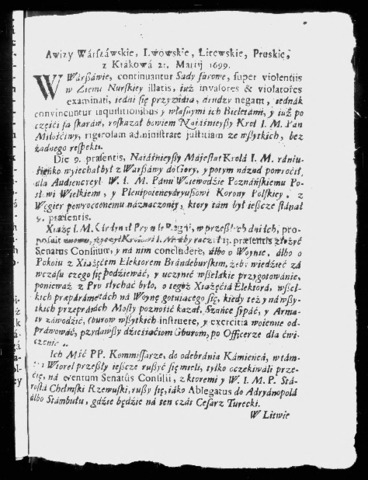 Awizy Warszawskie, Lwowskie, Litewskie, Pruskie,
z Krakowá 21. Martij 1699.
W Wárszáwie, continuuntur Sądy surowe, super violentiis
w Ziemi Nurskiey illatis, iuż invasores & violatores
examinati, iedni się przyznáią, drudzy negant, iednák
convincuntur inquisitionibus y własnymi ich Bieltámi, y iuż po
części są skaráni, roskazał bowiem Naiáśnieyszy Krol I. M. Pan
Miłościwy, rigorosam administrare justitiam ze wszytkich, bez
żadnego respektu.
Die 9. præsentis, Naiáśnieyszy Májestat Krolá I. M. rániu-
sieńko wyiechał był z Wárszáwy do Gory, y potym názad powrocił,
dla Audiencyey W. I. M. Pánu Woiewodzie Poznáńskiemu Po-
słowi Wielkiemu, y Plenipotencyaryuszowi Korony Polskiey, z
Węgier powroconemu náznaczoney, ktory tám był ieszcze stánął
y. præsentis.
Xiążę I. M. Kárdynał Prymas Regni, w przeszłych dniach, pro-
Senatus Consilium, y ná nim concludere, álbo o Woynie, álbo o
Pokoiu z Xiążęciem Elektorem Brándeburskim, żeby wiedzieć zá
wczásu czego się spodziewáć, y uczynić wszelákie przygotowánie,
ponieważ z Prus słycháć było, o tegoż Xiążęciá Elektorá, wszel-
kich præparámentách ná Woynę gotuiącego się, kiedy też y ná wszy-
tkich przepráwách Mosty pozność kazał, Szańce sypáć, y Arma-
ty záwodzić, Gburow wszytkich instruere, y exercitia woienne od-
práwowáć, przydawszy dziesiąciom Gburom, po Officerze dla ćwi-
czenia.
Ich Mść PP. Kommissarze, do odebránia Kámieńcá, w tám-
ten Wtorek przeszły ieszcze ruszyć się mieli, tylko oczekiwáli prze-
cię, ná eventum Senatûs Consilii, z ktoremi y W. I. M. P. Stá-
rostá Chełmski Rzewuski, ruszy się, iáko Ablegatus do Adryánopolá
álbo Stámbułu, gdzie będzie ná ten czás Cesarz Turecki.
W Litwie